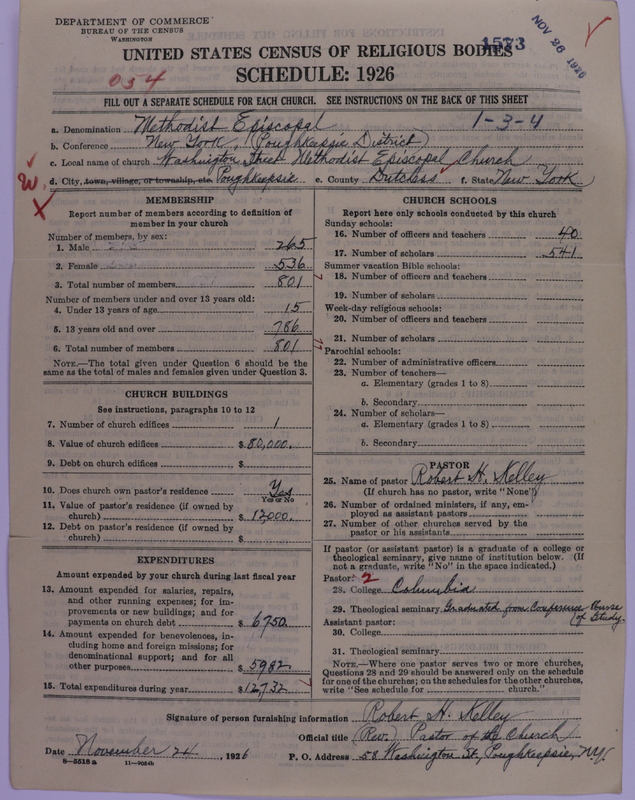 DEPARTMENT OF COMMERCE
BUREAU OF THE CENSUS
WASHINGTON
1573
NOV 26 1926
UNITED STATES CENSUS OF RELIGIOUS BODIES
SCHEDULE: 1926
034
FILL OUT A SEPARATE SCHEDULE FOR EACH CHURCH. SEE INSTRUCTIONS ON THE BACK OF THIS SHEET
1-3-4
a. Denomination Methodist Episcopal
b. Conference New York, (Poughkeepsie District)
c. Local name of church Washington Street Methodist Episcopal Church
d. City, town, village, or township, etc. Poughkeepsie e. County Dutchess f. State New York
MEMBERSHIP
Report number of members according to definition of
member in your church
Number of members, by sex:
1. Male 265
2. Female 536
3. Total number of members 801
Number of members under and over 13 years old:
4. Under 13 years of age 15
5. 13 years old and over 786
6. Total number of members 801
NOTE.—The total given under Question 6 should be the
same as the total of males and females given under Question 3.
CHURCH BUILDINGS
See instructions, paragraphs 10 to 12
7. Number of church edifices 1
8. Value of church edifices $80,000.
9. Debt on church edifices $
10. Does church own pastor's residence Yes
Yes or No
11. Value of pastor's residence (if owned by
church) $12000.
12. Debt on pastor's residence (if owned by
church) $
EXPENDITURES
Amount expended by your church during last fiscal year
13. Amount expended for salaries, repairs,
and other running expenses; for im-
provements or new buildings; and for
payments on church debt $6750.
14. Amount expended for benevolences, in-
cluding home and foreign missions; for
denominational support; and for all
other purposes $5982.
15. Total expenditures during year $12732
CHURCH SCHOOLS
Report here only schools conducted by this church
Sunday schools:
16. Number of officers and teachers 40
17. Number of scholars 541
Summer vacation Bible schools:
18. Number of officers and teachers
19. Number of scholars
Week-day religious schools:
20. Number of officers and teachers
21. Number of scholars
Parochial schools:
22. Number of administrative officers
23. Number of teachers—
a. Elementary (grades 1 to 8)
b. Secondary
24. Number of scholars—
a. Elementary (grades 1 to 8)
b. Secondary
PASTOR
25. Name of pastor Robert H. Kelley
(If church has no pastor, write "None")
26. Number of ordained ministers, if any, em-
ployed as assistant pastors
27. Number of other churches served by the
pastor or his assistants
If pastor (or assistant pastor) is a graduate of a college or
theological seminary, give name of institution below. (If
not a graduate, write "No" in the space indicated.)
Pastor: 2
28. College Columbia
29. Theological seminary Graduated from Conference Course
of Study.
Assistant pastor:
30. College
31. Theological seminary
NOTE.—Where one pastor serves two or more churches,
Questions 28 and 29 should be answered only on the schedule
for one of the churches; on the schedules for the other churches,
write "See schedule for church."
Signature of person furnishing information Robert H. Kelley
Official title (Rev.) Pastor of the Church
Date November 24, 1926 P. O. Address 58 Washington St, Poughkeepsie, N.Y.
8—5518 a 11—9054b